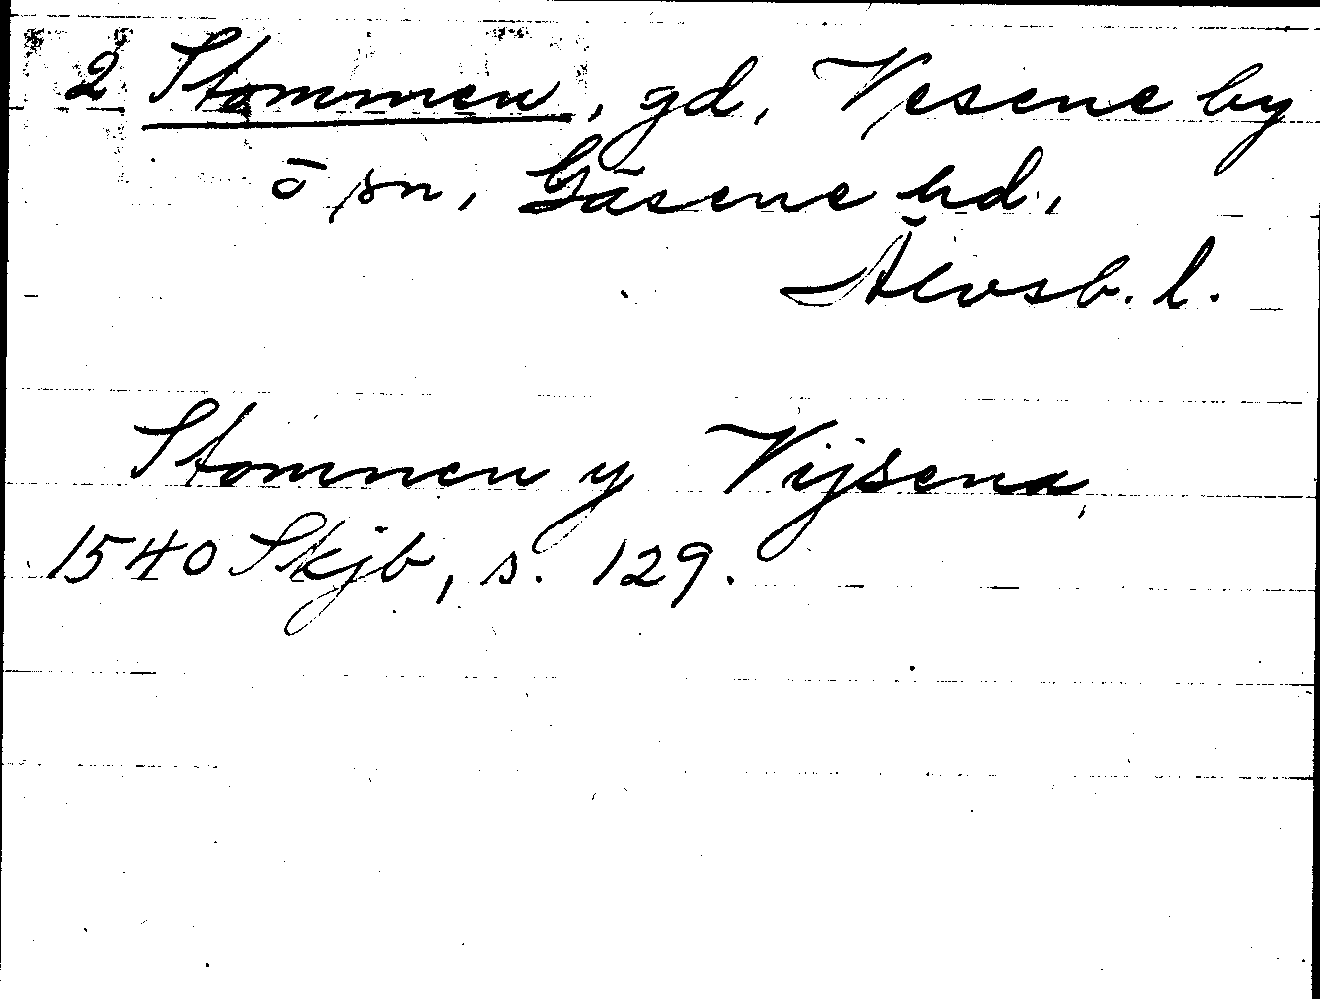 2 Stommen, gd, Vesene by
ō sn, Gäsene hd,
Älvsb. l.
Stommen y Vijsena,
1540 Skjb, s. 129.